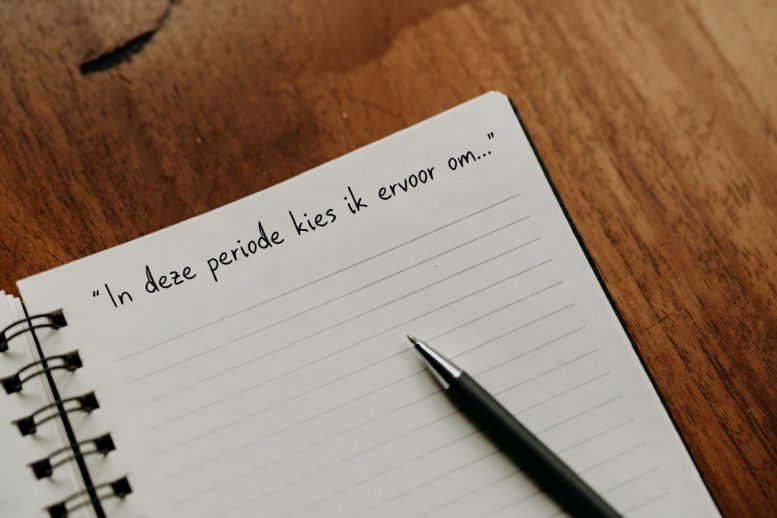 "In deze periode kies ik ervoor om..."